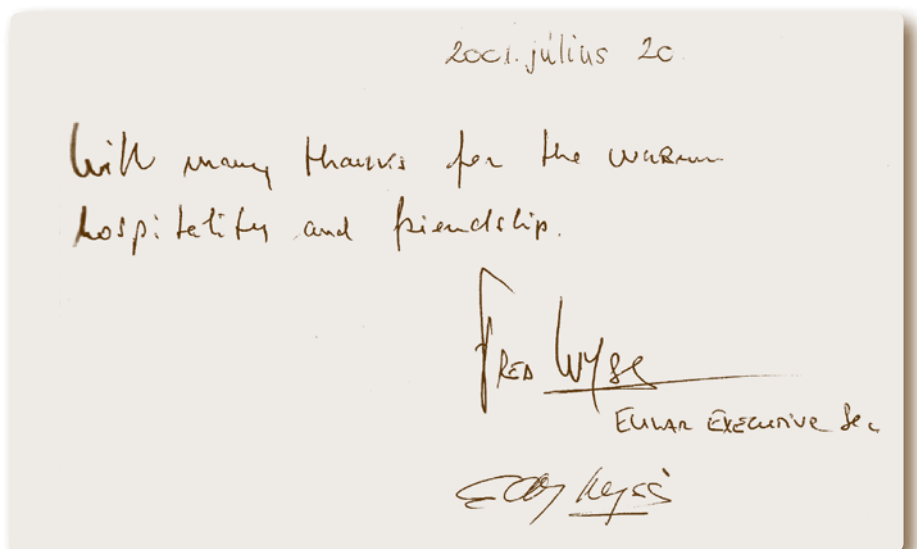 2001. július 20
With many thanks for the warm
hospitality and friendship.
Fred Wyss
EULAR EXECUTIVE Sec
Wyss